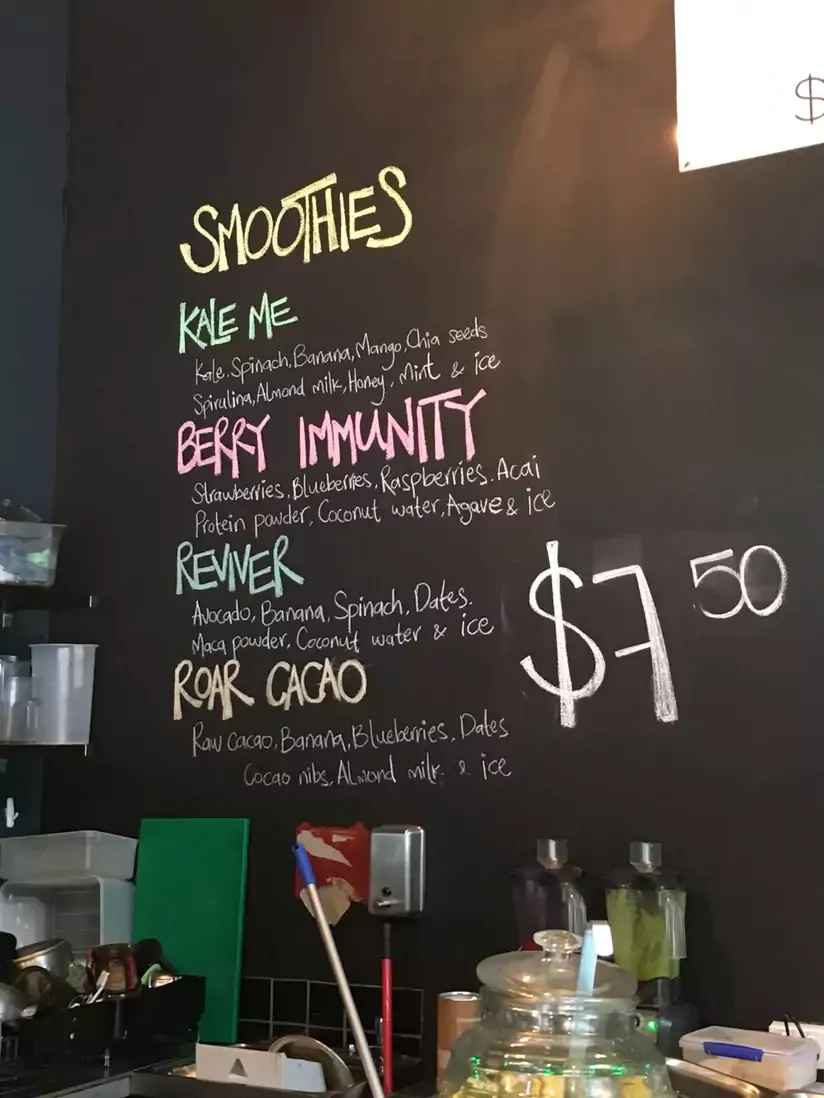 $
SMOOTHIES
KALE ME
Kale, Spinach, Banana, Mango, Chia seeds
Spirulina, Almond milk, Honey, Mint & ice
BERRY IMMUNITY
Strawberries, Blueberries, Raspberries, Acai
Protein powder, Coconut water, Agave & ice
REVIVER
Avocado, Banana, Spinach, Dates.
Maca powder, Coconut water & ice
$7 50
ROAR CACAO
Raw cacao, Banana, Blueberries, Dates
Cacao nibs, Almond milk. & ice